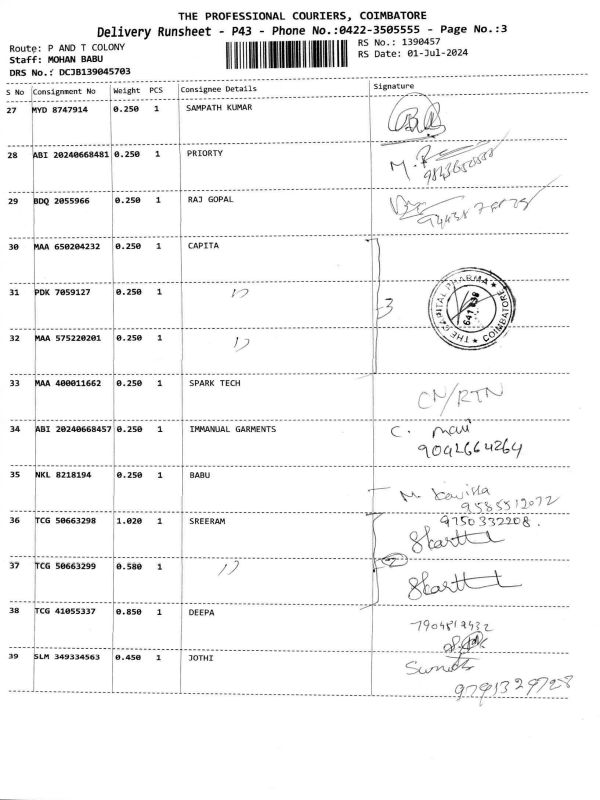 THE PROFESSIONAL COURIERS, COIMBATORE
Delivery Runsheet - P43 - Phone No.:0422-3505555 - Page No.:3
Route: P AND T COLONY
RS No.: 1390457
Staff: MOHAN BABU
RS Date: 01-Jul-2024
DRS No.: DCJB139045703
S No Consignment No Weight PCS Consignee Details Signature
27 MYD 8747914 0.250 1 SAMPATH KUMAR
28 ABI 20240668481 0.250 1 PRIORTY
29 BDQ 2055966 0.250 1 RAJ GOPAL
30 MAA 650204232 0.250 1 CAPITA
31 PDK 7059127 0.250 1 3
THE CAPITAL PHARMA ★ COIMBATORE ★
32 MAA 575220201 0.250 1
33 MAA 400011662 0.250 1 SPARK TECH CN/RTN
34 ABI 20240668457 0.250 1 IMMANUAL GARMENTS C. mani
9042664264
35 NKL 8218194 0.250 1 BABU
9585512072
36 TCG 50663298 1.020 1 SREERAM 9750332208.
37 TCG 50663299 0.580 1 2
38 TCG 41055337 0.850 1 DEEPA
39 SLM 349334563 0.450 1 JOTHI
9791329728